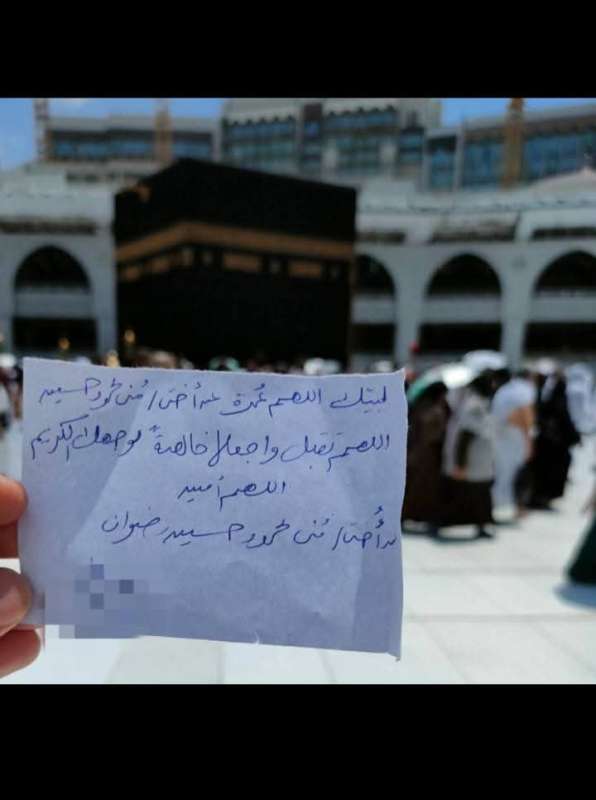 لبيك اللهم عُمرة عن أختي / مُنى محمود حسين
اللهم تقبل واجعلها خالصةً لوجهك الكريم
اللهم أمين
أُختي / مُنى محمود حسين رضوان